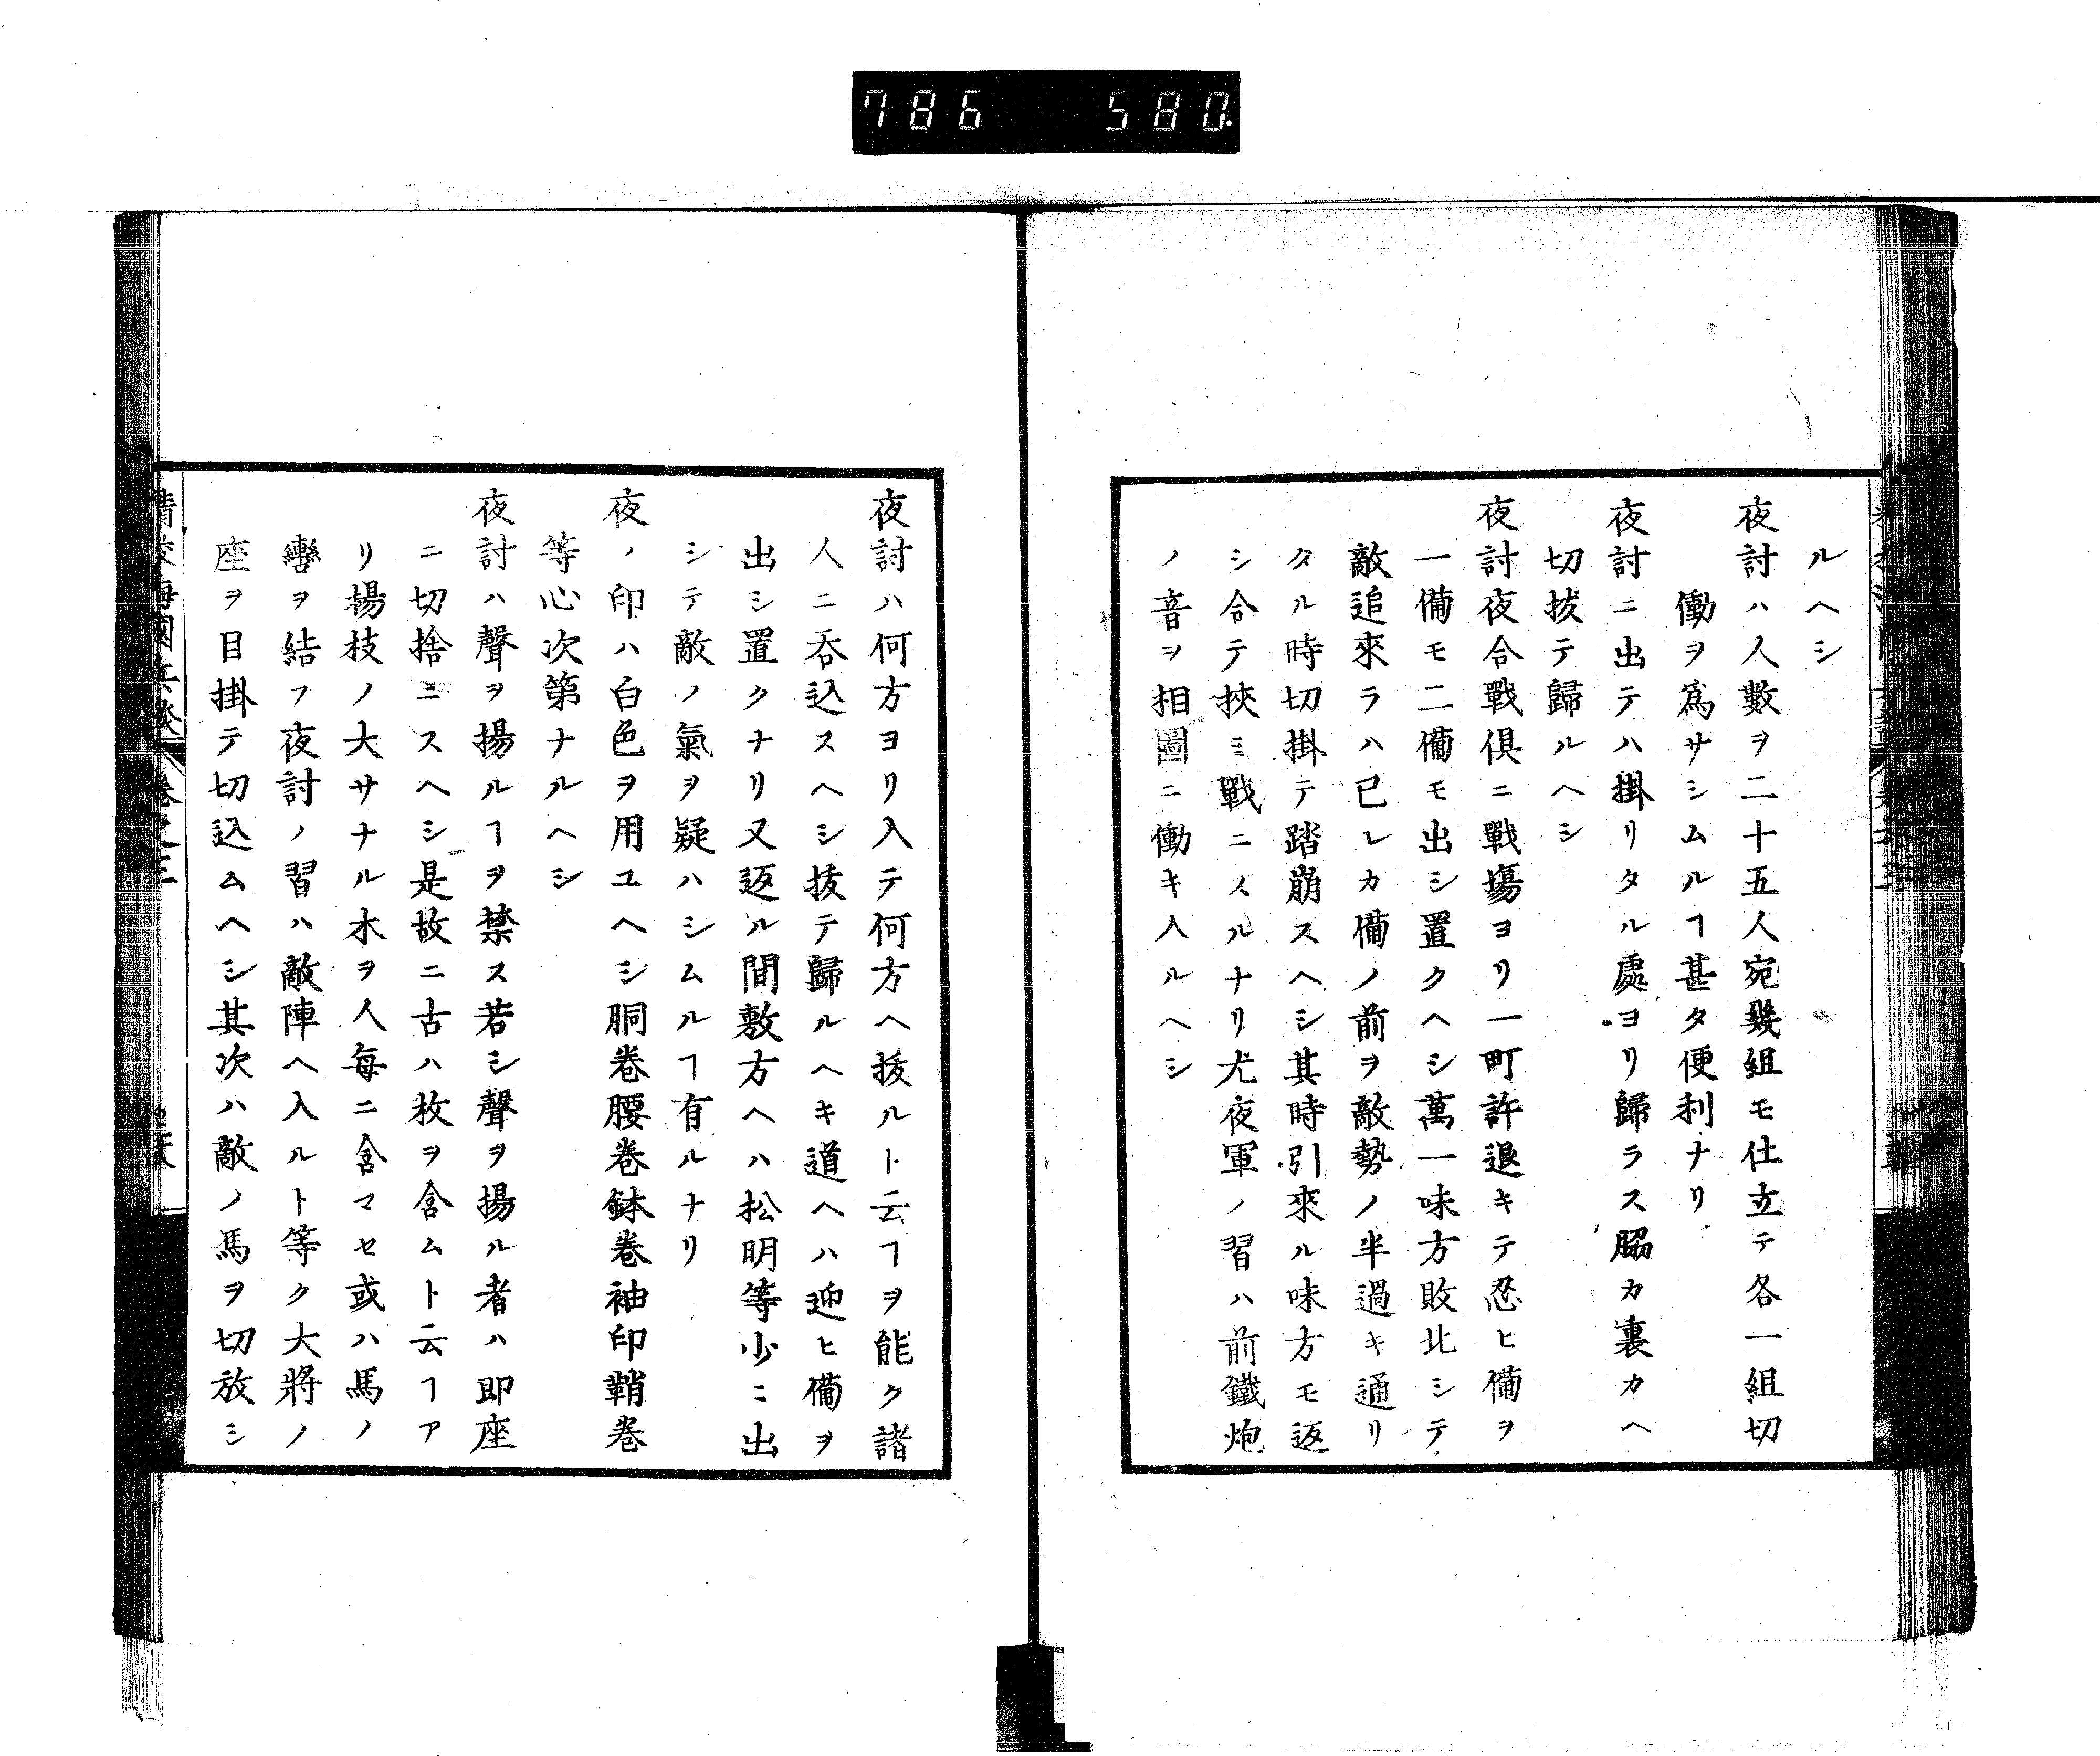 786 580
ルヘシ
夜討ハ人數ヲ二十五人宛幾組モ仕立テ各一組切
働ヲ爲サシムルヿ甚タ便利ナリ
夜討ニ出テハ掛リタル處ヨリ歸ラス脇カ裏カヘ
切拔テ歸ルヘシ
夜討夜合戰俱ニ戰塲ヨリ一町許退キテ忍ヒ備ヲ
一備モ二備モ出シ置クヘシ萬一味方敗北シテ
敵追來ラハ已レカ備ノ前ヲ敵勢ノ半過キ通リ
タル時切掛テ踏崩スヘシ其時引來ル味方モ返
シ合テ挾ミ戰ニスルナリ尤夜軍ノ習ハ前鐵炮
ノ音ヲ相圖ニ働キ入ルヘシ
夜討ハ何方ヨリ入テ何方ヘ拔ルト云ヿヲ能ク諸
人ニ吞込スヘシ拔テ歸ルヘキ道ヘハ迎ヒ備ヲ
出シ置クナリ又返ル間敷方ヘハ松明等少ニ出
シテ敵ノ氣ヲ疑ハシムルヿ有ルナリ
夜ノ印ハ白色ヲ用ユヘシ胴卷腰卷鉢卷袖印鞘卷
等心次第ナルヘシ
夜討ハ聲ヲ揚ルヿヲ禁ス若シ聲ヲ揚ル者ハ即座
ニ切捨ニスヘシ是故ニ古ハ枚ヲ含ムト云ヿア
リ楊枝ノ大サナル木ヲ人每ニ含マセ或ハ馬ノ
轡ヲ結フ夜討ノ習ハ敵陣ヘ入ルト等ク大將ノ
座ヲ目掛テ切込ムヘシ其次ハ敵ノ馬ヲ切放シ
海國兵談 卷之三